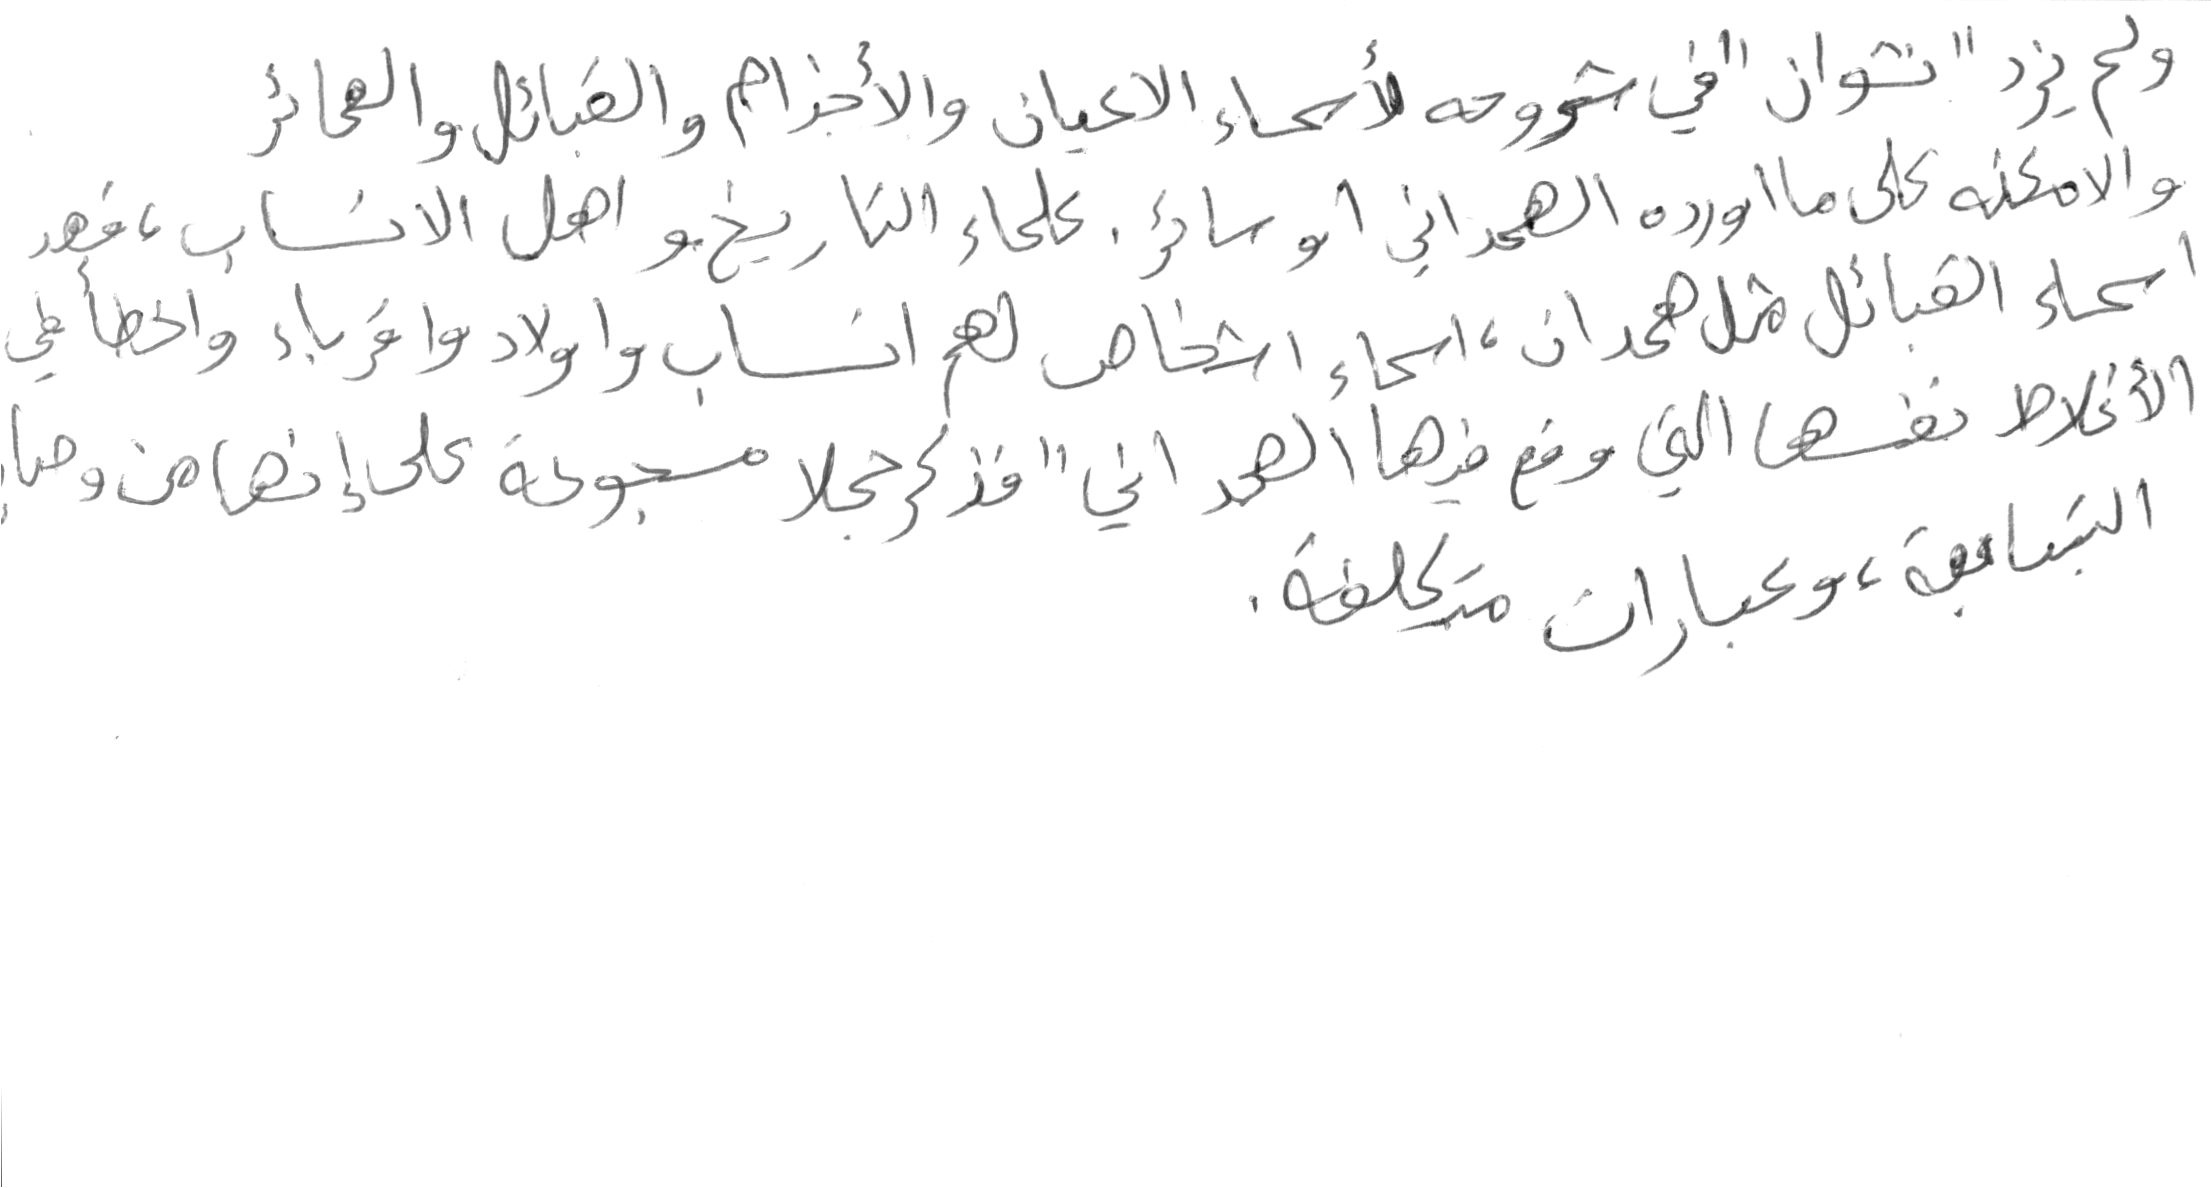 ولم يزد "نشوان" في شروحه لأسماء الاعيان والأجذام والقبائل والعمائر
والامكنه على ما اورده الهمداني او سائر علماء التاريخ و اهل الانساب ، فعد
اسماء القبائل مثل همدان ، اسماء اشخاص لهم انساب واولاد واقرباء واخطأ في
الأغلاط نفسها التي وقع فيها الهمداني" فذكر جملا مسجوعة على إنها من وصايا
التبابعة ، وعبارات متكلفة .